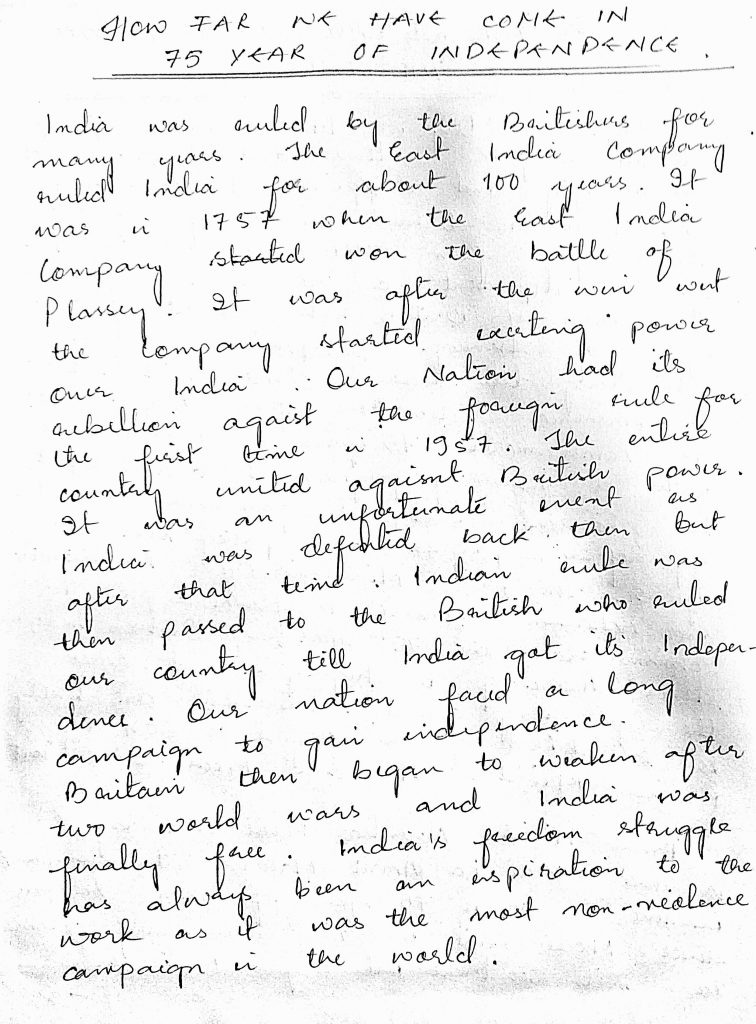 HOW FAR WE HAVE COME IN
75 YEAR OF INDEPENDENCE.
India was ruled by the Britishers for
many years. The East India Company
ruled India for about 100 years. It
was in 1757 when the East India
Company started won the battle of
Plassey. It was after the win wut
the Company started exerting power
over India. Our Nation had its
rebellion agaist the foreign rule for
the first time in 1957. The entire
country united agaisnt British power.
It was an unfortunate event as
India was defeated back then but
after that time. Indian rule was
then passed to the British who ruled
our country till India got its Indepen-
dence. Our nation faced a long
campaign to gain independence.
Britain then began to weaken after
two world wars and India was
finally free. India's freedom struggle
has always been an inspiration to the
work as it was the most non-violence
campaign in the world.